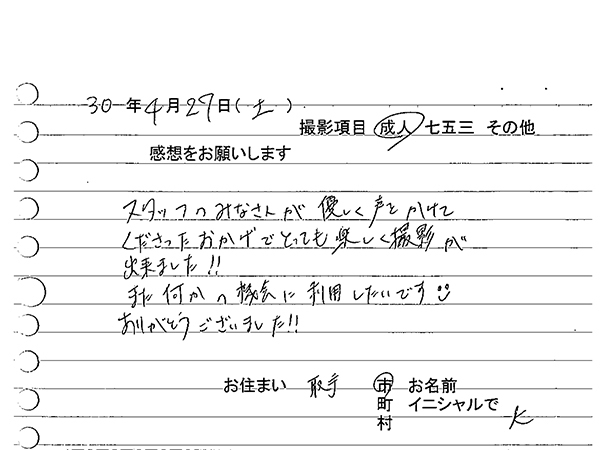 30年4月27日(土)
撮影項目 成人 七五三 その他
感想をお願いします
スタッフのみなさんが優しく声をかけて
くださったおかげでとっても楽しく撮影が
出来ました!!
また何かの機会に利用したいです
ありがとうございました!!
お住まい 取手 市 お名前
町 イニシャルで K
村